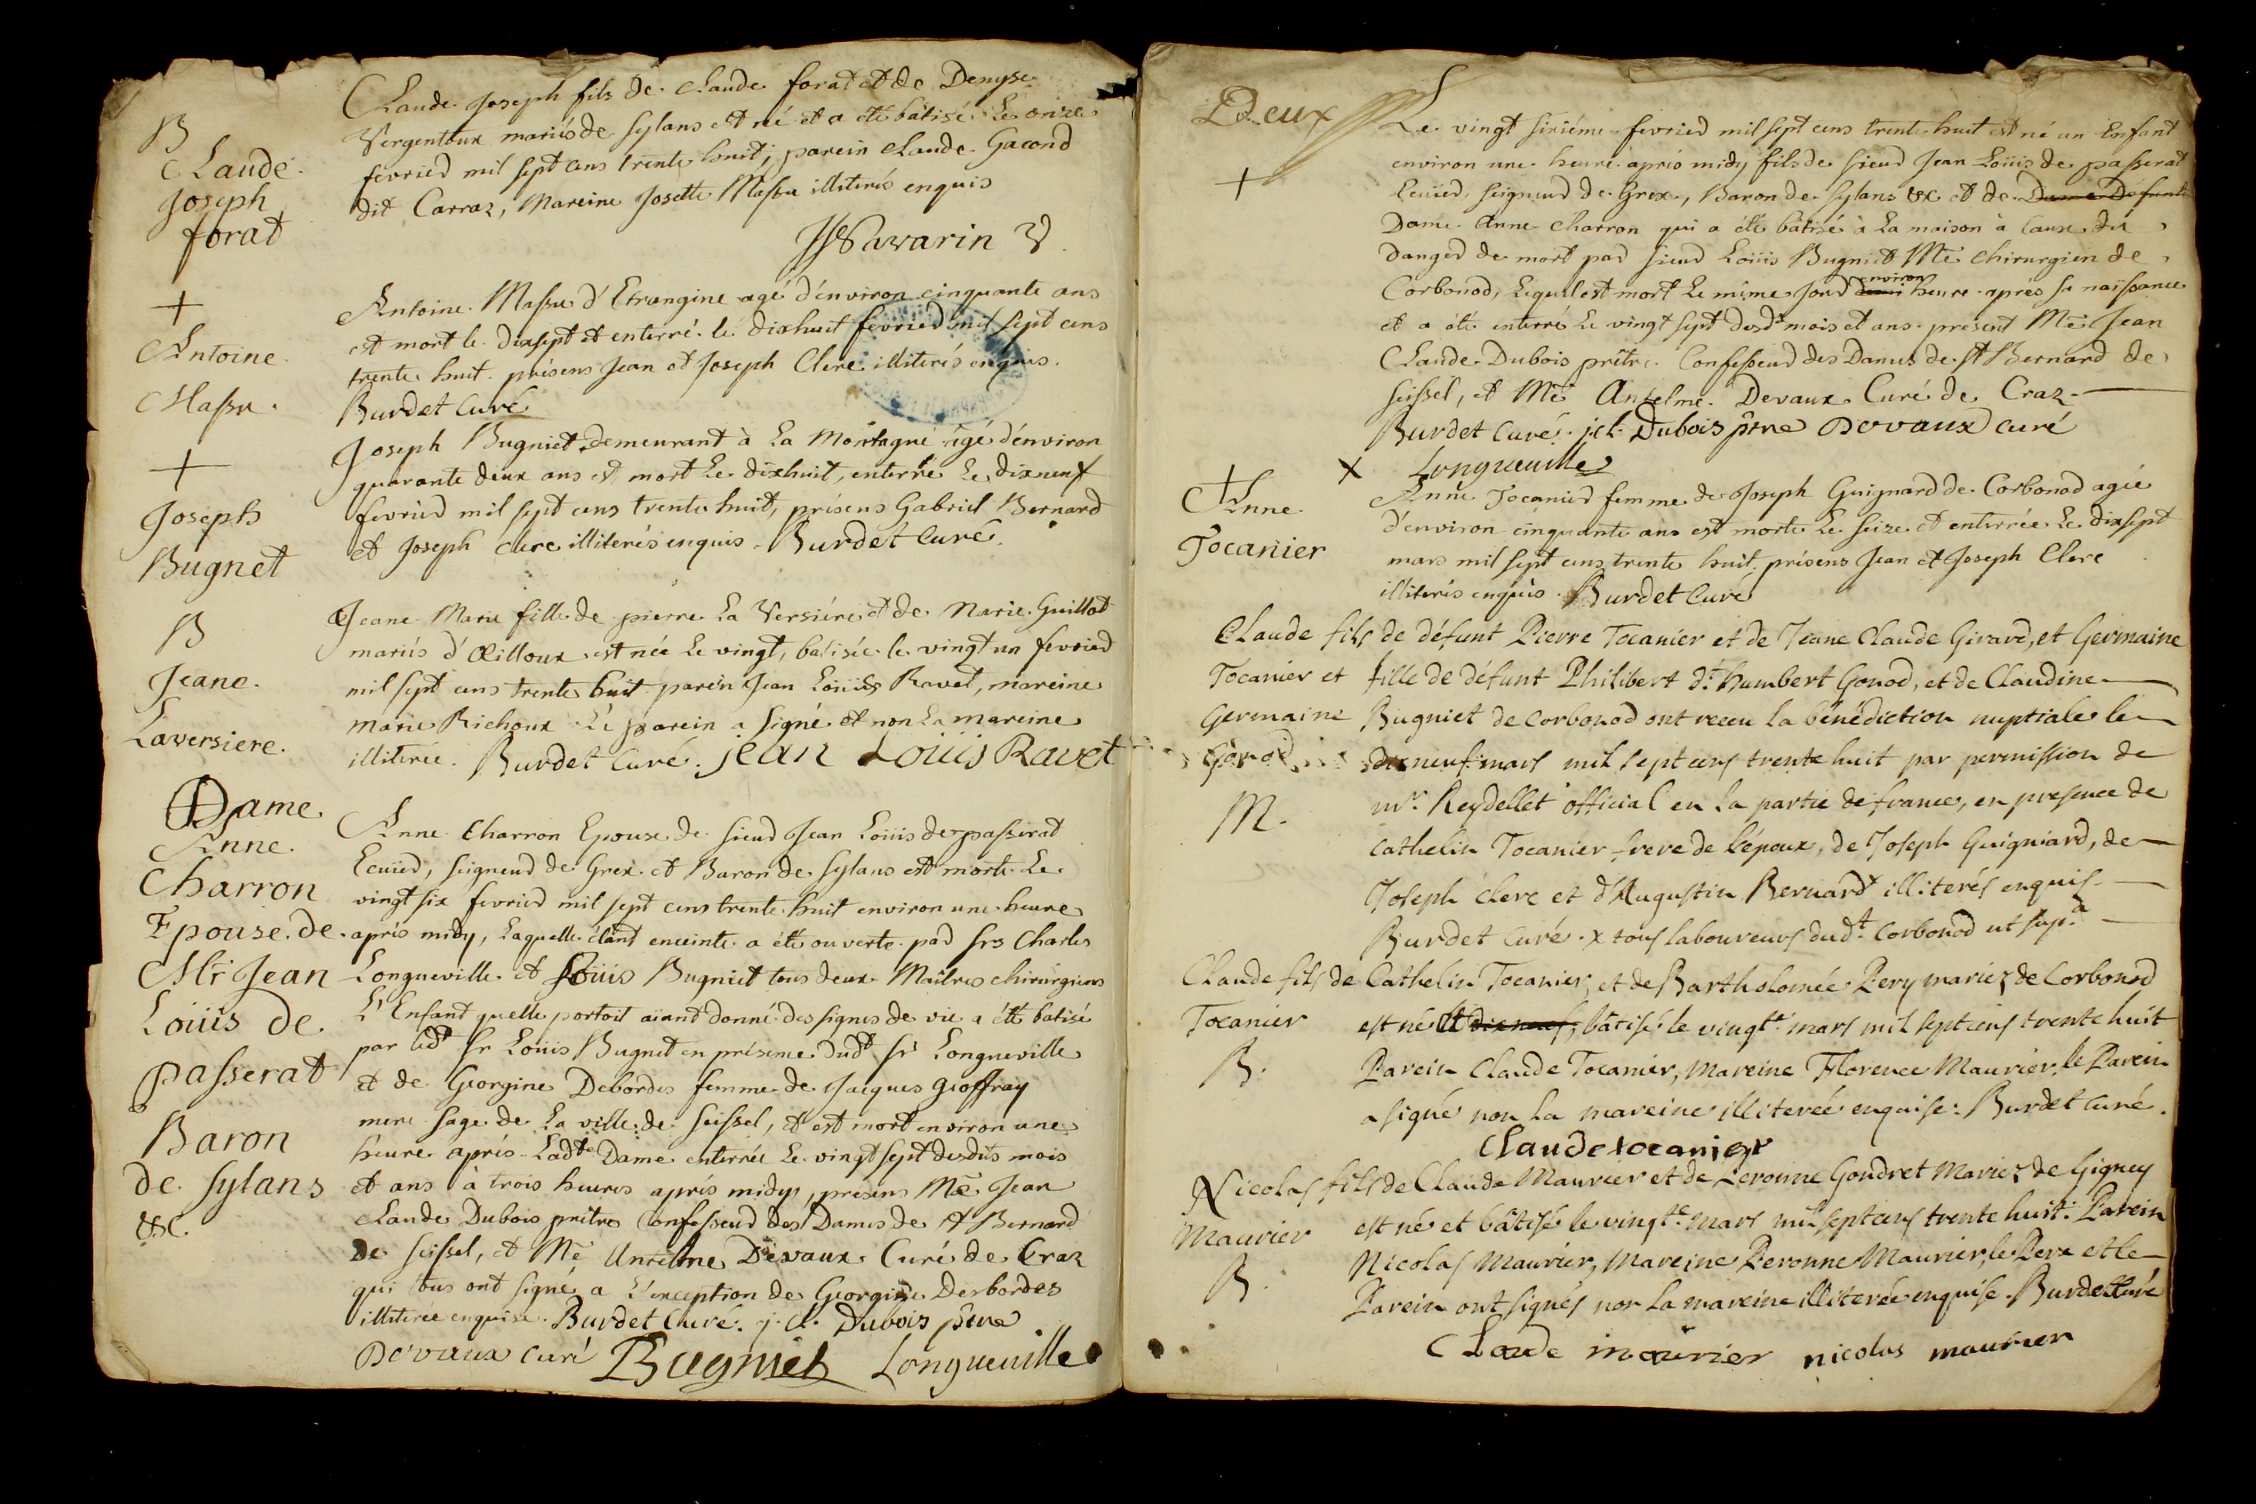 B
Claude
Joseph
forat
Claude Joseph fils de Claude forat et de Denyse
Vergentoux mariés de Sylans est né et a été bâtisé le onze
fevrier mil sept cens trente huit; parein Claude Gacond
dit Carraz, Mareine Josette Massu illiterés enquis
Savarin V
+
Antoine
Massu.
Antoine Massu d'Etrangine agé d'environ cinquante ans
est mort le dixsept et enterré le dixhuit fevrier mil sept cens
trente huit présens Jean et Joseph Clerc illiterés enquis.
Burdet Curé
+
Joseph
Bugnet
Joseph Bugniet demeurant à La Montagne agé d'environ
quarante deux ans est mort le dixhuit, enterré le dixneuf
fevrier mil sept cens trente huit, présens Gabriel Bernard
et Joseph Clerc illiterés enquis. Burdet Curé.
B
Jeane
Laversiere.
Jeane Marie fille de pierre La Versiére et de Marie Guillot
mariés d'Œilloux est née le vingt, batisée le vingt un fevrier
mil sept cens trente huit parein Jean Loüis Ravet, mareine
Marie Richoux Le parein a signé et non la mareine
illiterée. Burdet Curé. jean Loüis Ravet
Dame
Anne
Charron
Epouse de
Mr Jean
Loüis de
Passerat
Baron
de Sylans
&c.
Anne Charron Epouse de Sieur Jean Loüis de passerat
Ecuïer, Seigneur de Grex et Baron de Sylans est morte le
vingt six fevrier mil sept cens trente huit environ une heure
aprés midy, laquelle étant enceinte a été ouverte par Srs Charles
Longueville et Loüis Bugniet tous deux Maîtres chirurgiens
L'Enfant quelle portoit aiant donné des signes de vie a été batisé
par ledt Sr Loüis Bugnet en présence dudt Sr Longueville
et de Georgine Debordes femme de Jacques Geoffray
mere sage de la ville de Seissel, et est mort environ une
heure aprés. Ladte Dame enterrée le vingt sept desdits mois
et ans à trois heures aprés midy, présens Me Jean
Claude Dubois prêtre Confesseur des Dames de St Bernard
de Seissel, et Me Antelme Devaux Curé de Craz
qui tous ont signé a l'exception de Georgine Desbordes
illiterée enquise. Burdet Curé. j. cl. Dubois ptre
Devaux curé Bugniet Longueuille
Deux
+
Le vingt sixiéme fevrier mil sept cens trente huit est né un Enfant
environ une heure aprés midy fils de Sieur Jean Loüis de passerat
Ecuïer, Seigneur de Grex, Baron de Sylans &c et de Dame Defunte
Dame Anne Charron qui a été bâtisé à la maison à cause du
danger de mort par Sieur Loüis Bugniet Me chirurgien de
Corbonod, lequel est mort le même jour environ heure aprés sa naissance
et a été enterré le vingt sept desdt mois et ans présent Me Jean
Claude Dubois prêtre Confesseur des Dames de St Bernard de
Seissel, et Me Anselme Devaux Curé de Craz
Burdet Curé. j.cl. Dubois ptre Devaux curé
x Longueuille
+
Anne
Tocanier
Anne Tocanier femme de Joseph Guignard de Corbonod agée
d'environ cinquante ans est morte le seize et enterrée le dixsept
mars mil sept cens trente huit, présens Jean et Joseph Clerc
illiterés enquis. Burdet Curé
Claude fils de défunt Pierre Tocanier et de Jeane Claude Girard, et Germaine
Tocanier et fille de défunt Philibert dt humbert Gonod, et de Claudine
Germaine Bugniet de Corbonod ont receu la bénédiction nuptiale le
Gonod dixneuf mars mil sept cens trente huit par permission de
M. mr. Reydellet official en la partie de france, en presence de
Cathelin Tocanier frere de l'époux, de Joseph Guigniard, de
Joseph Clerc et d'Augustin Bernard illiterés enquis
Burdet Curé. x tous laboureurs dudt. Corbonod ut supa
Claude fils de Cathelin Tocanier, et de Bartholomée Pery mariez de Corbonod
Tocanier est né le dixneuf, bâtisé le vingte mars mil sept cens trente huit
B. Parein Claude Tocanier, Mareine Florence Maurier, le Parein
a signé non la mareine illiterée enquise. Burdet Curé.
Claude tocanier
Nicolas fils de Claude Maurier et de Peronne Goudret Mariez de Gigney
Maurier est né et bâtisé le vingte. mars mil sept cens trente huit. Parein
B. Nicolas Maurier, Mareine Peronne Maurier, le Pere et le
Parein ont signés non la mareine illiterée enquise. Burdet Curé
Claude maurier nicolas maurier